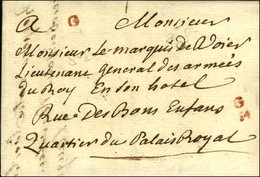 A Monsieur
Monsieur le marquis de Voier
Lieutenant general des armées
du Roy En son hotel
Rue Des Bons Enfans
Quartier du Palais Royal